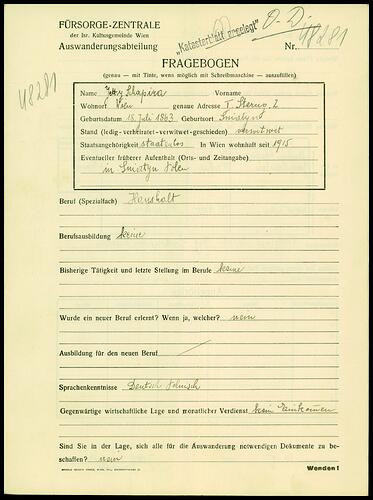 FÜRSORGE-ZENTRALE
der Isr. Kultusgemeinde Wien
Auswanderungsabteilung
"Katasterblatt angelegt"
Nr. 48281
48281
FRAGEBOGEN
(genau — mit Tinte, wenn möglich mit Schreibmaschine — auszufüllen)
Name Schapira Vorname
Wohnort Wien genaue Adresse
Geburtsdatum 18. Juli 1863 Geburtsort Sniatyn
Stand (ledig-verheiratet-verwitwet-geschieden) verwitwet
Staatsangehörigkeit staatenlos In Wien wohnhaft seit 1915
Eventueller früherer Aufenthalt (Orts- und Zeitangabe)
in Sniatyn Polen
Beruf (Spezialfach) Haushalt
Berufsausbildung keine
Bisherige Tätigkeit und letzte Stellung im Berufe keine
Wurde ein neuer Beruf erlernt? Wenn ja, welcher? nein
Ausbildung für den neuen Beruf
Sprachenkenntnisse Deutsch Polnisch
Gegenwärtige wirtschaftliche Lage und monatlicher Verdienst kein Einkommen
Sind Sie in der Lage, sich alle für die Auswanderung notwendigen Dokumente zu be-
schaffen? nein
Wenden!